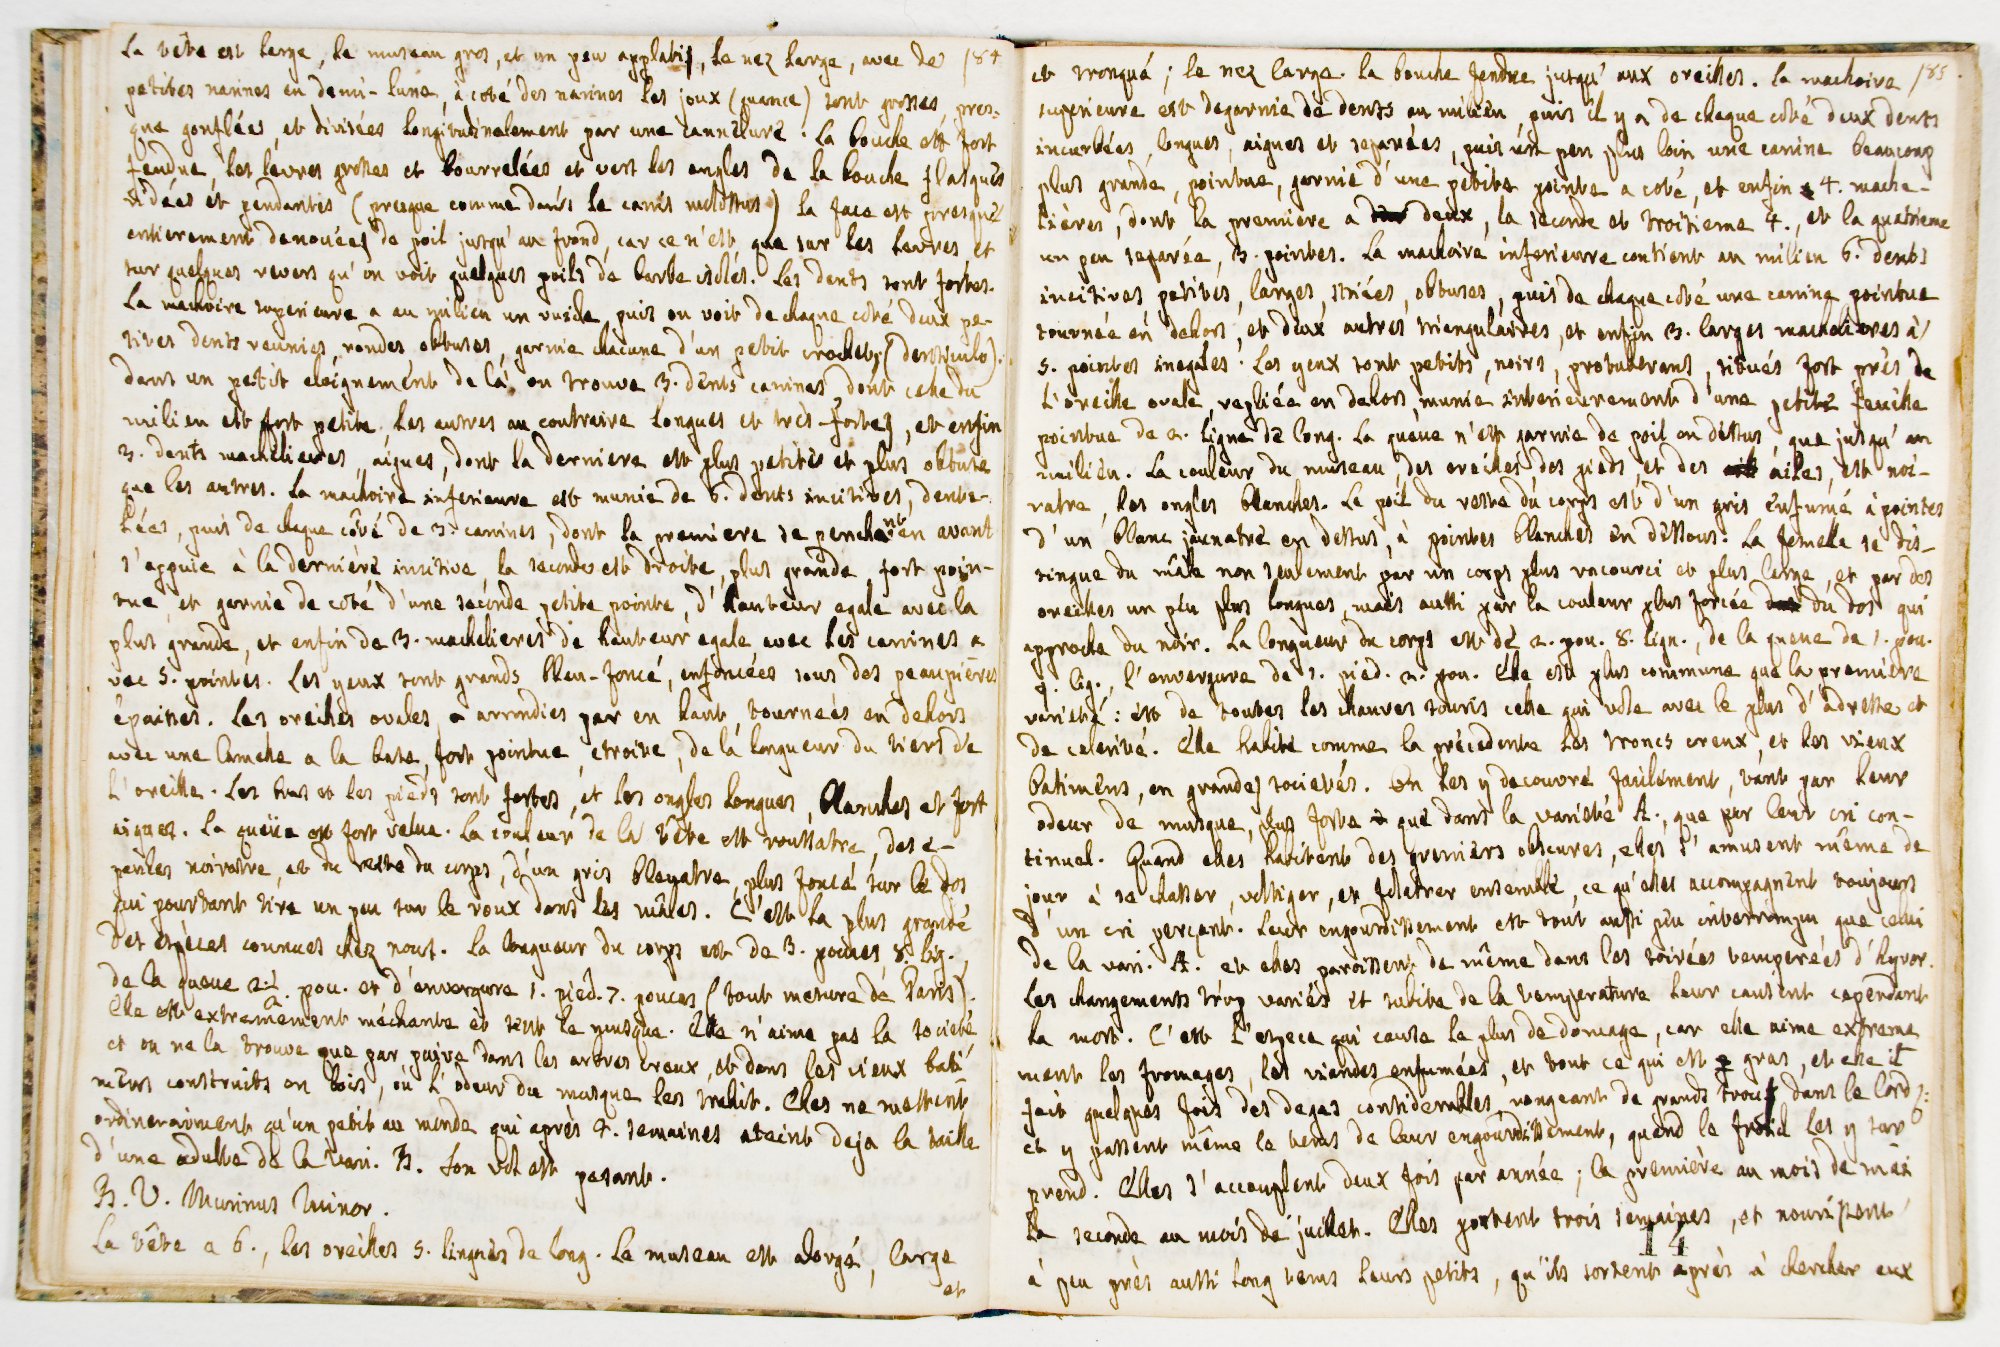 184
La tête est large, le museau gros, et un peu applatis, le nez large, avec de
petites narines en demi-lune, à coté des narines les joux (guance) sont grosses, pres-
que gonflées, et divisées longitudinalement par une cannelure. La bouche est fort
fendue, les levres grosses et bourrelées et vers les angles de la bouche flasques
ridées et pendantes (presque comme dans le canis molossus) la face est presque
entierement denouées de poil jusqu'au frond, car ce n'est que sur les levres et
sur quelques revers qu'on voit quelques poils de barbe isolés. Les dents sont fortes.
La machoire superieure a au milieu un vuide, puis on voit de chaque côté deux pe-
tites dents reunies, rondes obtuses, garnie chacune d'un petit crochet, (denticulo).
dans un petit eloignement de là on trouve 3. dents canines, dont celle du
milieu est fort petite, les autres au contraire longues et très-fortes, et enfin
3. dents machelieres aigues, dont la derniere est plus petite et plus obtuse
que les autres. La machoire inferieure est munie de 6. dents incitives, dente-
lées, puis de chaque côté de 3. canines, dont la premiere se penchant en avant
s'appuie à la derniére incitive, la seconde est droite, plus grande, fort poin-
tue, et garnie de coté d'une seconde petite pointe, d'hauteur egale avec la
plus grande, et enfin de 3. machelieres de hauteur egale avec les canines a
vec 5. pointes. Les yeux sont grands bleu-foncé, enfoncées sous des peaupières
épaisses. Les oreilles ovales, arrondies par en haut, tournées en dehors
avec une lamelle a la base, fort pointue, etroite, de la longueur du tiers de
l'oreille. Les bras et les pieds sont fortes, et les ongles longues, blanches et fort
aigues. La queüe est fort velue. La couleur de la tête est roussatre, des e-
paules noiratre, et du reste du corps, d'un gris bleuatre, plus foncé sur le dos
qui pourtant tire un peu sur le roux dans les mâles. C'est la plus grande
des espèces connues chez nous. La longueur du corps est de 3. pouces 8. lig.,
de la queue 2 1/2. pou. et d'envergure 1. pied. 7. pouces (tout mesure de Paris).
Elle est extremement méchante et sent le musque. Elle n'aime pas la societé
et on ne la trouve que par paire dans les arbres creux, et dans les vieux bati-
mens construits en bois, où l'odeur du musque les trahit. Elles ne mettent
ordinerairement qu'un petit au monde qui après 4. semaines ateint deja la taille
d'une adulte de la vari. B. Son vol est pesant.
B. V. Murinus Minor.
La tête a 6., les oreilles 5. lingnes de long. Le museau est alorgé, large
et
185.
et tronqué; le nez large. La bouche fendue jusqu'aux oreilles. La machoire
superieure est degarnie de dents au milieu, puis il y a de chaque côté deux dents
incurbées, longues, aigues et separées, puis un peu plus loin une canine beaucoup
plus grande, pointue, garnie d'une petite pointe a coté, et enfin 4. mache-
lières, dont la premiere a deux, la seconde et troisieme 4., et la quatrieme
un peu separée, 3. pointes. La machoire inferieure contient au milieu 6. dents
incitives petites, larges, striées, obtuses, puis de chaque côté une canine pointue
tournée en dehors, et deux autres triangulaires, et enfin 3. larges machelieres à
5. pointes inegales. Les yeux sont petits, noirs, protuberans, situés fort près de
l'oreille ovale, repliée en dehors, munie interieurement d'une petite feuille
pointue de 2. ligne de long. La queue n'est garnie de poil en dessus, que jusqu'au
milieu. La couleur du museau, des oreilles, des pieds, et des ailes, est noi-
ratre, les ongles blanches. Le poil du reste du corps est d'un gris enfumé à pointes
d'un blanc jaunatre en dessus, à pointes blanches en dessous. La femelle se dis-
tingue du mâle non seulement par un corps plus racourci et plus large, et par des
oreilles un peu plus longues, mais aussi par la couleur plus forcée du dos qui
approche du noir. La longueur du corps est de 2. pou. 8. lign., de la queue de 1. pou.
9. lig., l'envergure de 1. pied. 2. pou. Elle est plus commune que la première
varieté: est de toutes les chauves souris celle qui vole avec le plus d'adresse et
de celerité. Elle habite comme la précedente les troncs creux, et les vieux
batimens, en grandes societés. On les y decouvre facilement, tant par leur
odeur de musque, plus forte que dans la varieté A., que par leur cri con-
tinuel. Quand elles habitent des greniers obscures, elles s'amusent même de
jour à se chasser, voltiger, et folatrer ensemble, ce qu'elles accompagnent toujours
d'un cri perçant. Leur engourdissement est tout aussi peu interrompu que celui
de la vari. A. et elles paroissent de même dans les soirées temperées d'hyver.
Les changements trop variés et subite de la temperature leur causent cependant
la mort. C'est l'espece qui cause le plus de domage, car elle aime extreme
ment les fromages, les viandes enfumées, et tout ce qui est gras, et elle
fait quelques fois des degas considerables, rongeant de grands trous dans le lard
et y passent même le tems de leur engourdissement, quand le froid les y sur
prend. Elles s'accouplent deux fois par année; la première au mois de mai
la seconde au mois de juillet. Elles portent trois semaines, et nourissent
à peu près aussi long tems leurs petits, qu'ils sortent après à chercher eux
14